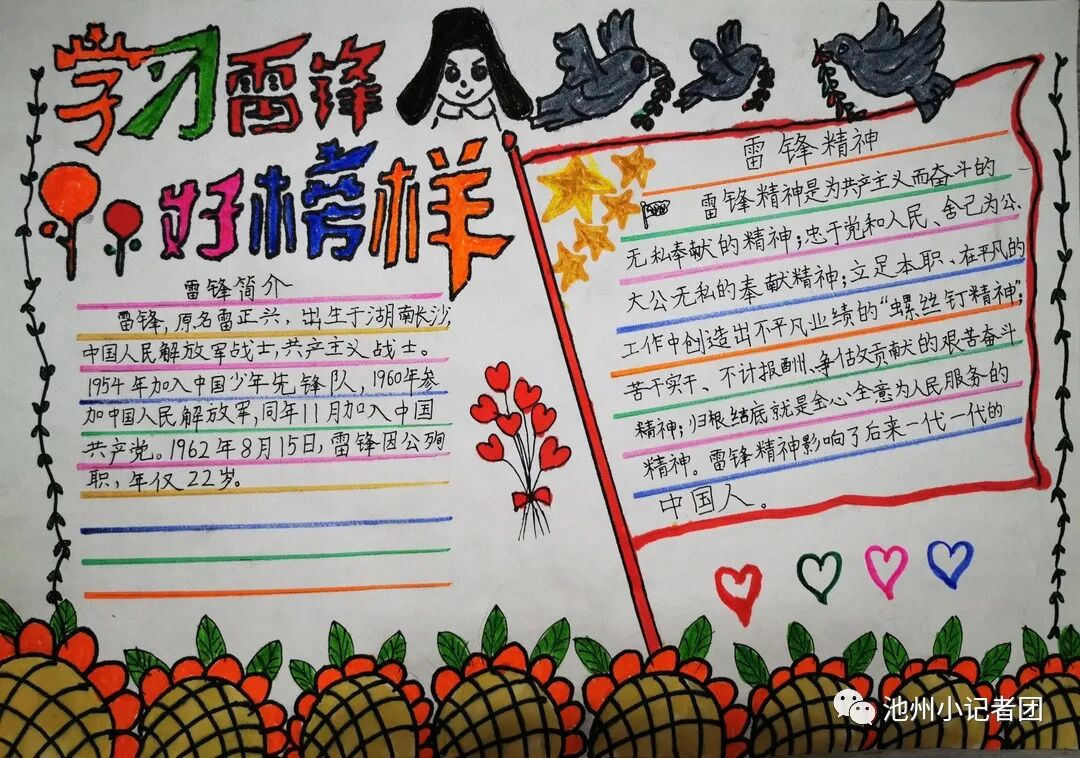 学习雷锋
好榜样
雷锋简介
雷锋，原名雷正兴，出生于湖南长沙，
中国人民解放军战士，共产主义战士。
1954年加入中国少年先锋队，1960年参
加中国人民解放军，同年11月加入中国
共产党。1962年8月15日，雷锋因公殉
职，年仅22岁。
雷锋精神
雷锋精神是为共产主义而奋斗的
无私奉献的精神；忠于党和人民、舍己为公、
大公无私的奉献精神；立足本职、在平凡的
工作中创造出不平凡业绩的“螺丝钉精神”；
苦干实干、不计报酬、争估攵贡献的艰苦奋斗
精神；归根结底就是全心全意为人民服务的
精神。雷锋精神影响了后来一代一代的
中国人。
池州小记者团